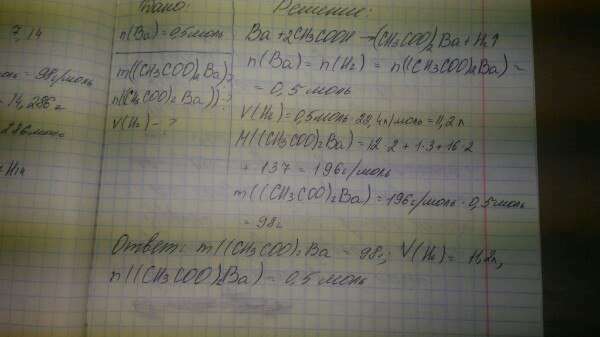 7,14
98 г/моль
14,286 г
286 моль
Дано:
n(Ba) = 0,5 моль
m((CH3COO)2Ba)-?
n((CH3COO)2Ba))-?
V(H2) - ?
Решение:
Ba + 2CH3COOH → (CH3COO)2Ba + H2↑
n(Ba) = n(H2) = n((CH3COO)2Ba) =
= 0,5 моль
V(H2) = 0,5 моль · 22,4 л/моль = 11,2 л
M((CH3COO)2Ba) = 12·2 + 1·3 + 16·2
+ 137 = 196 г/моль
m((CH3COO)2Ba) = 196 г/моль · 0,5 моль
= 98 г
Ответ: m((CH3COO)2Ba = 98 г; V(H2) = 11,2 л,
n((CH3COO)2Ba) = 0,5 моль